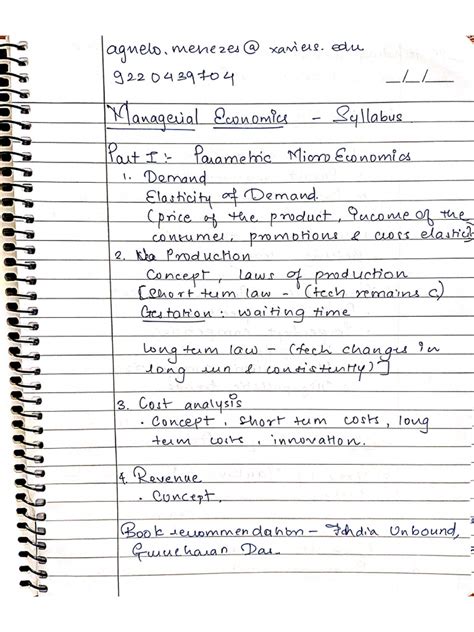 agnelo.menezes@ xaviers.edu
9220439704
_/_/_
Managerial Economics - Syllabus
Part I :- Parametric Micro Economics
1. Demand
Elasticity of Demand
(price of the product, Income of the
consumer, promotions & cross elastici
2. Production
Concept, laws of production
[Short term law - (tech remains c)
Gestation : waiting time
long term law - (tech changes in
long run & consistently)]
3. Cost analysis
. Concept, short term costs, long
term costs, innovation.
4. Revenue
. Concept,
Book recommendation - India Unbound,
Gurucharan Das